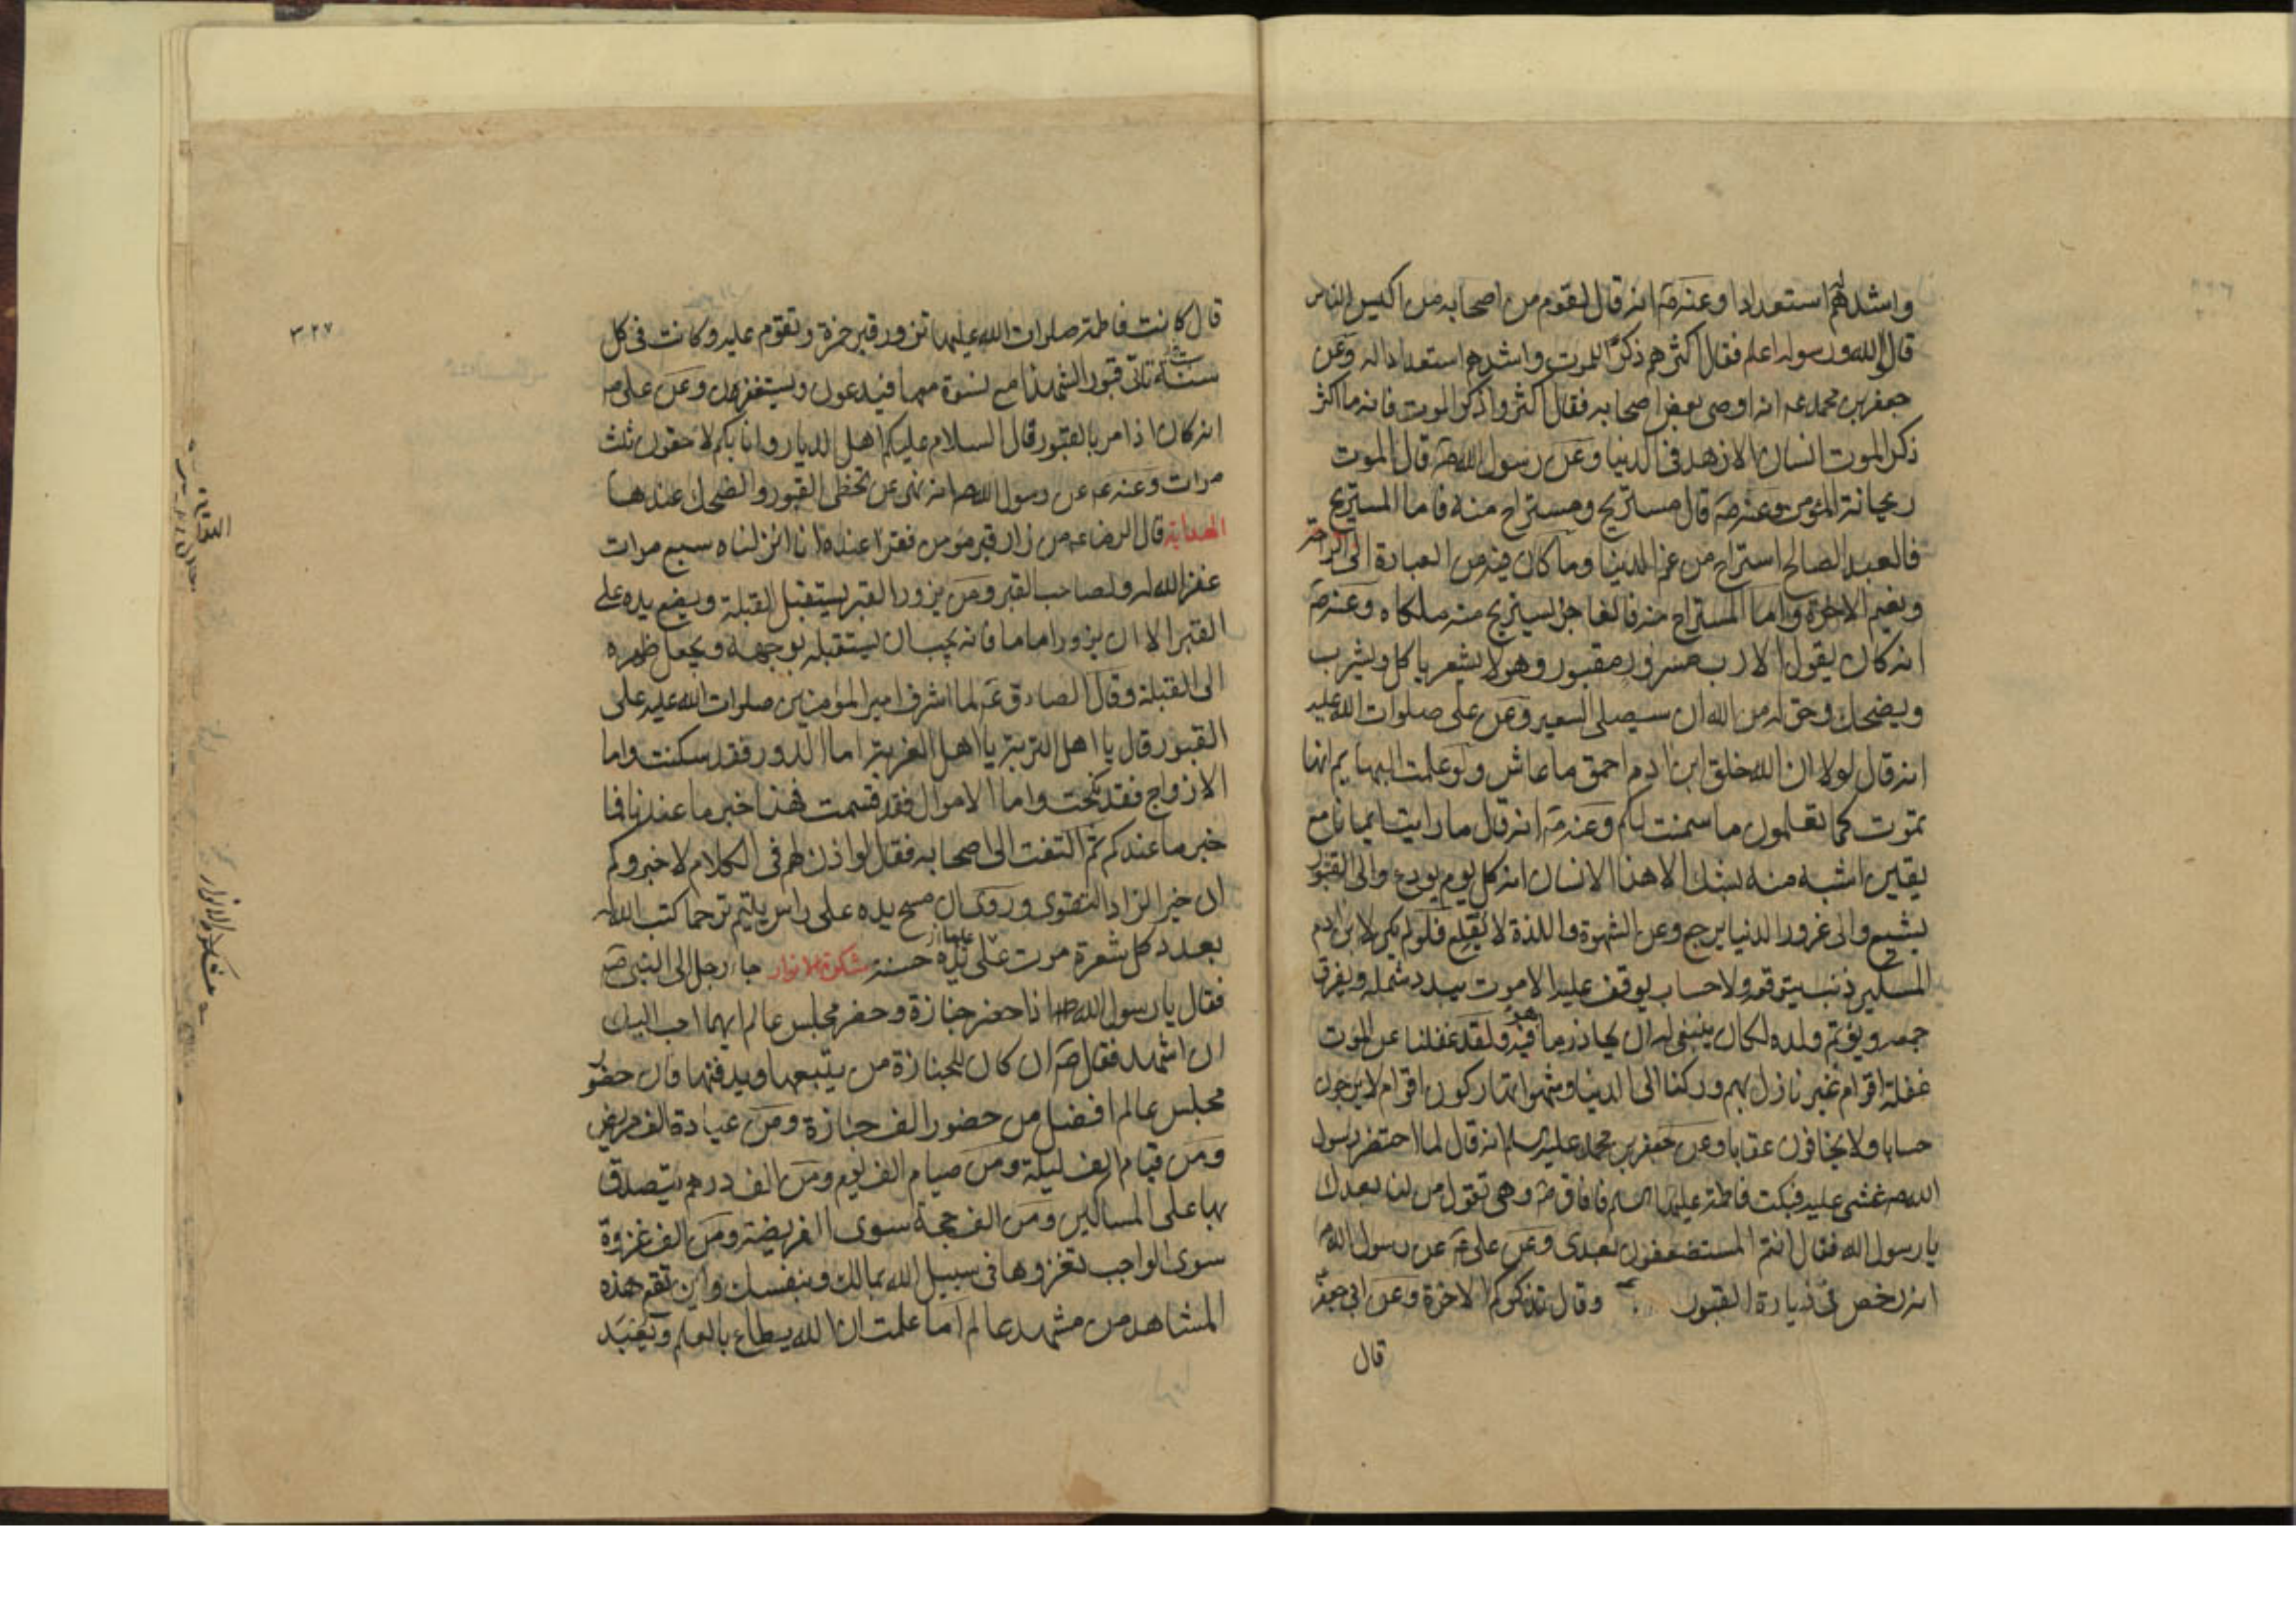 واشدهم له استعدادا وعنه صه انه قال لقوم من اصحابه من اكيس الناس
قالوا الله ورسوله اعلم فقال اكثرهم ذكرا للموت واشدهم استعدادا له وعن
جعفر بن محمد عه انه اوصى بعض اصحابه فقال اكثروا ذكر الموت فانه ما اكثر
ذكر الموت انسان الا زهد في الدنيا وعن رسول الله صه قال الموت
ريحانة المؤمن وعنه صه قال مستريح ومستراح منه فاما المستريح
فالعبد الصالح استراح من غم الدنيا وما كان فيه من العبادة الى الراحة
ونعيم الاخرة واما المستراح منه فالفاجر يستريح منه ملكاه وعنه صه
انه كان يقول الا رب مسرور مقبور وهو لا يشعر ياكل ويشرب
ويضحك وحق له من الله ان سيصلى السعير وعن على صلوات الله عليه
انه قال لولا ان الله خلق ابن ادم احمق ما عاش ولو علمت البهايم انها
تموت كما تعلمون ما سمنت لكم وعنه صه انه قال ما رايت ايمانا مع
يقين اشبه منه بشك الا هذا الانسان انه كل يوم يودع والى القبور
يشيع والى غرور الدنيا يرجع وعن الشهوة واللذة لا يقلع فلو لم يكن لابن ادم
المسكين ذنب يتوقعه ولا حساب يوقف عليه الا موت يبدد شمله ويفرق
جمعه ويؤتم ولده لكان ينبغى له ان يحاذر ما هو فيه ولقد غفلنا عن الموت
غفلة اقوام غير نازل بهم وركنا الى الدنيا وشهواتها ركون اقوام لا يرجون
حسابا ولا يخافون عقابا وعن جعفر بن محمد عليه السلم انه قال لما احتضر رسول
الله صه غشى عليه فبكت فاطمة عليها السلم فافاق صه وهى تقول من لنا بعدك
يا رسول الله فقال انتم المستضعفون بعدى وعن على عه عن رسول الله صه
انه رخص فى زيارة القبور وقال تذكركم الاخرة وعن ابى جعفر
قال
٣٢٧
قال كانت فاطمة صلوات الله عليها تزور قبر حمزة وتقوم عليه وكانت فى كل
سنة تاتى قبور الشهدا مع نسوة معها فيدعون ويستغفرون وعن على صه
انه كان اذا مر بالقبور قال السلام عليكم اهل الديار وانا بكم لاحقون ثلث
مرات وعنه عه عن رسول الله صه انه نهى عن تخطى القبور والضحك عندها
الهداية قال الرضا عه من زار قبر مؤمن فقرا عنده انا انزلناه سبع مرات
غفر الله له ولصاحب القبر ومن يزور القبر يستقبل القبلة ويضع يده على
القبر الا ان يزور اماما فانه يجب ان يستقبله بوجهه ويجعل ظهره
الى القبلة وقال الصادق عه لما اشرف امير المؤمنين صلوات الله عليه على
القبور قال يا اهل التربة يا اهل الغربة اما الدور فقد سكنت واما
الازواج فقد نكحت واما الاموال فقد قسمت فهذا خبر ما عندنا فما
خبر ما عندكم ثم التفت الى اصحابه فقال لو اذن لهم فى الكلام لاخبروكم
ان خير الزاد التقوى وروى ان مسح يده على راس يتيم ترحما كتب الله له
بعدد كل شعرة مرت على يده حسنة مشكوة الانوار جاء رجل الى النبى صه
فقال يا رسول الله صه اذا حضر جنازة وحضر مجلس عالم ايهما احب اليك
ان اشهد فقال صه ان كان للجنازة من يتبعها ويدفنها فان حضور
مجلس عالم افضل من حضور الف جنازة ومن عيادة الف مريض
ومن قيام الف ليلة ومن صيام الف يوم ومن الف درهم يتصدق
بها على المساكين ومن الف حجة سوى الفريضة ومن الف غزوة
سوى الواجب تغزوها فى سبيل الله بمالك وبنفسك واين تقع هذه
المشاهد من مشهد عالم اما علمت ان الله يطاع بالعلم ويعبد
مشكوة الانوار